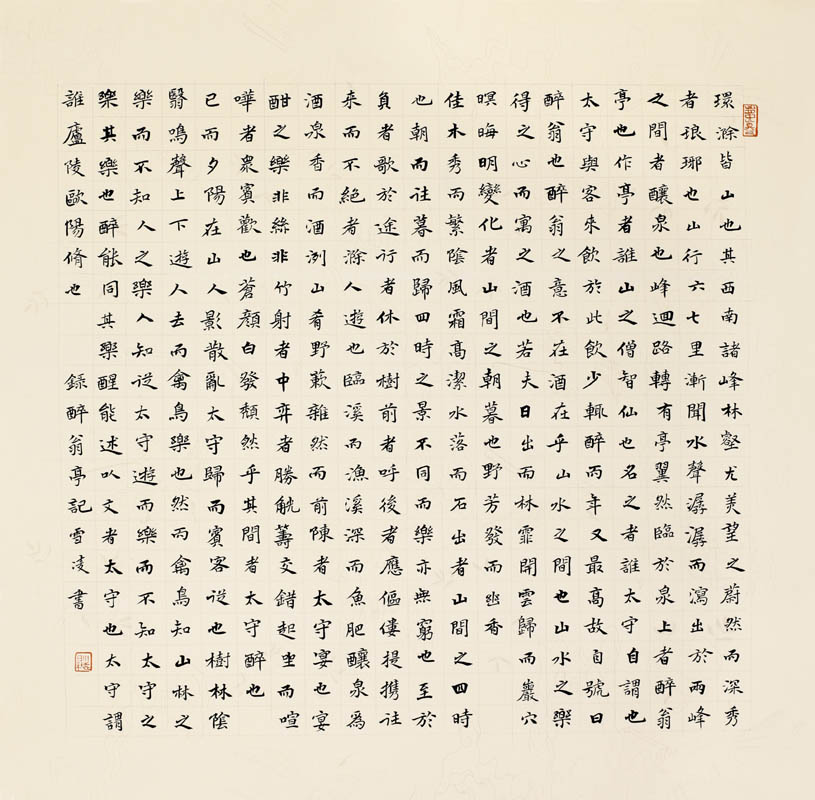 環滁皆山也其西南諸峰林壑尤美望之蔚然而深秀
者琅琊也山行六七里漸聞水聲潺潺而瀉出於兩峰
之間者釀泉也峰迴路轉有亭翼然臨於泉上者醉翁
亭也作亭者誰山之僧智仙也名之者誰太守自謂也
太守與客來飲於此飲少輒醉而年又最高故自號曰
醉翁也醉翁之意不在酒在乎山水之間也山水之樂
得之心而寓之酒也若夫日出而林霏開雲歸而巖穴
暝晦明變化者山間之朝暮也野芳發而幽香
佳木秀而繁陰風霜高潔水落而石出者山間之四時
也朝而往暮而歸四時之景不同而樂亦無窮也至於
負者歌於途行者休於樹前者呼後者應傴僂提攜往
来而不絕者滁人遊也臨溪而漁溪深而魚肥釀泉為
酒泉香而酒洌山肴野蔌雜然而前陳者太守宴也宴
酣之樂非絲非竹射者中弈者勝觥籌交錯起坐而喧
嘩者眾賓歡也蒼顏白發頹然乎其間者太守醉也
已而夕陽在山人影散亂太守歸而賓客從也樹林陰
翳鳴聲上下遊人去而禽鳥樂也然而禽鳥知山林之
樂而不知人之樂人知從太守遊而樂而不知太守之
樂其樂也醉能同其樂醒能述以文者太守也太守謂
誰廬陵歐陽脩也 錄醉翁亭記雪凌書